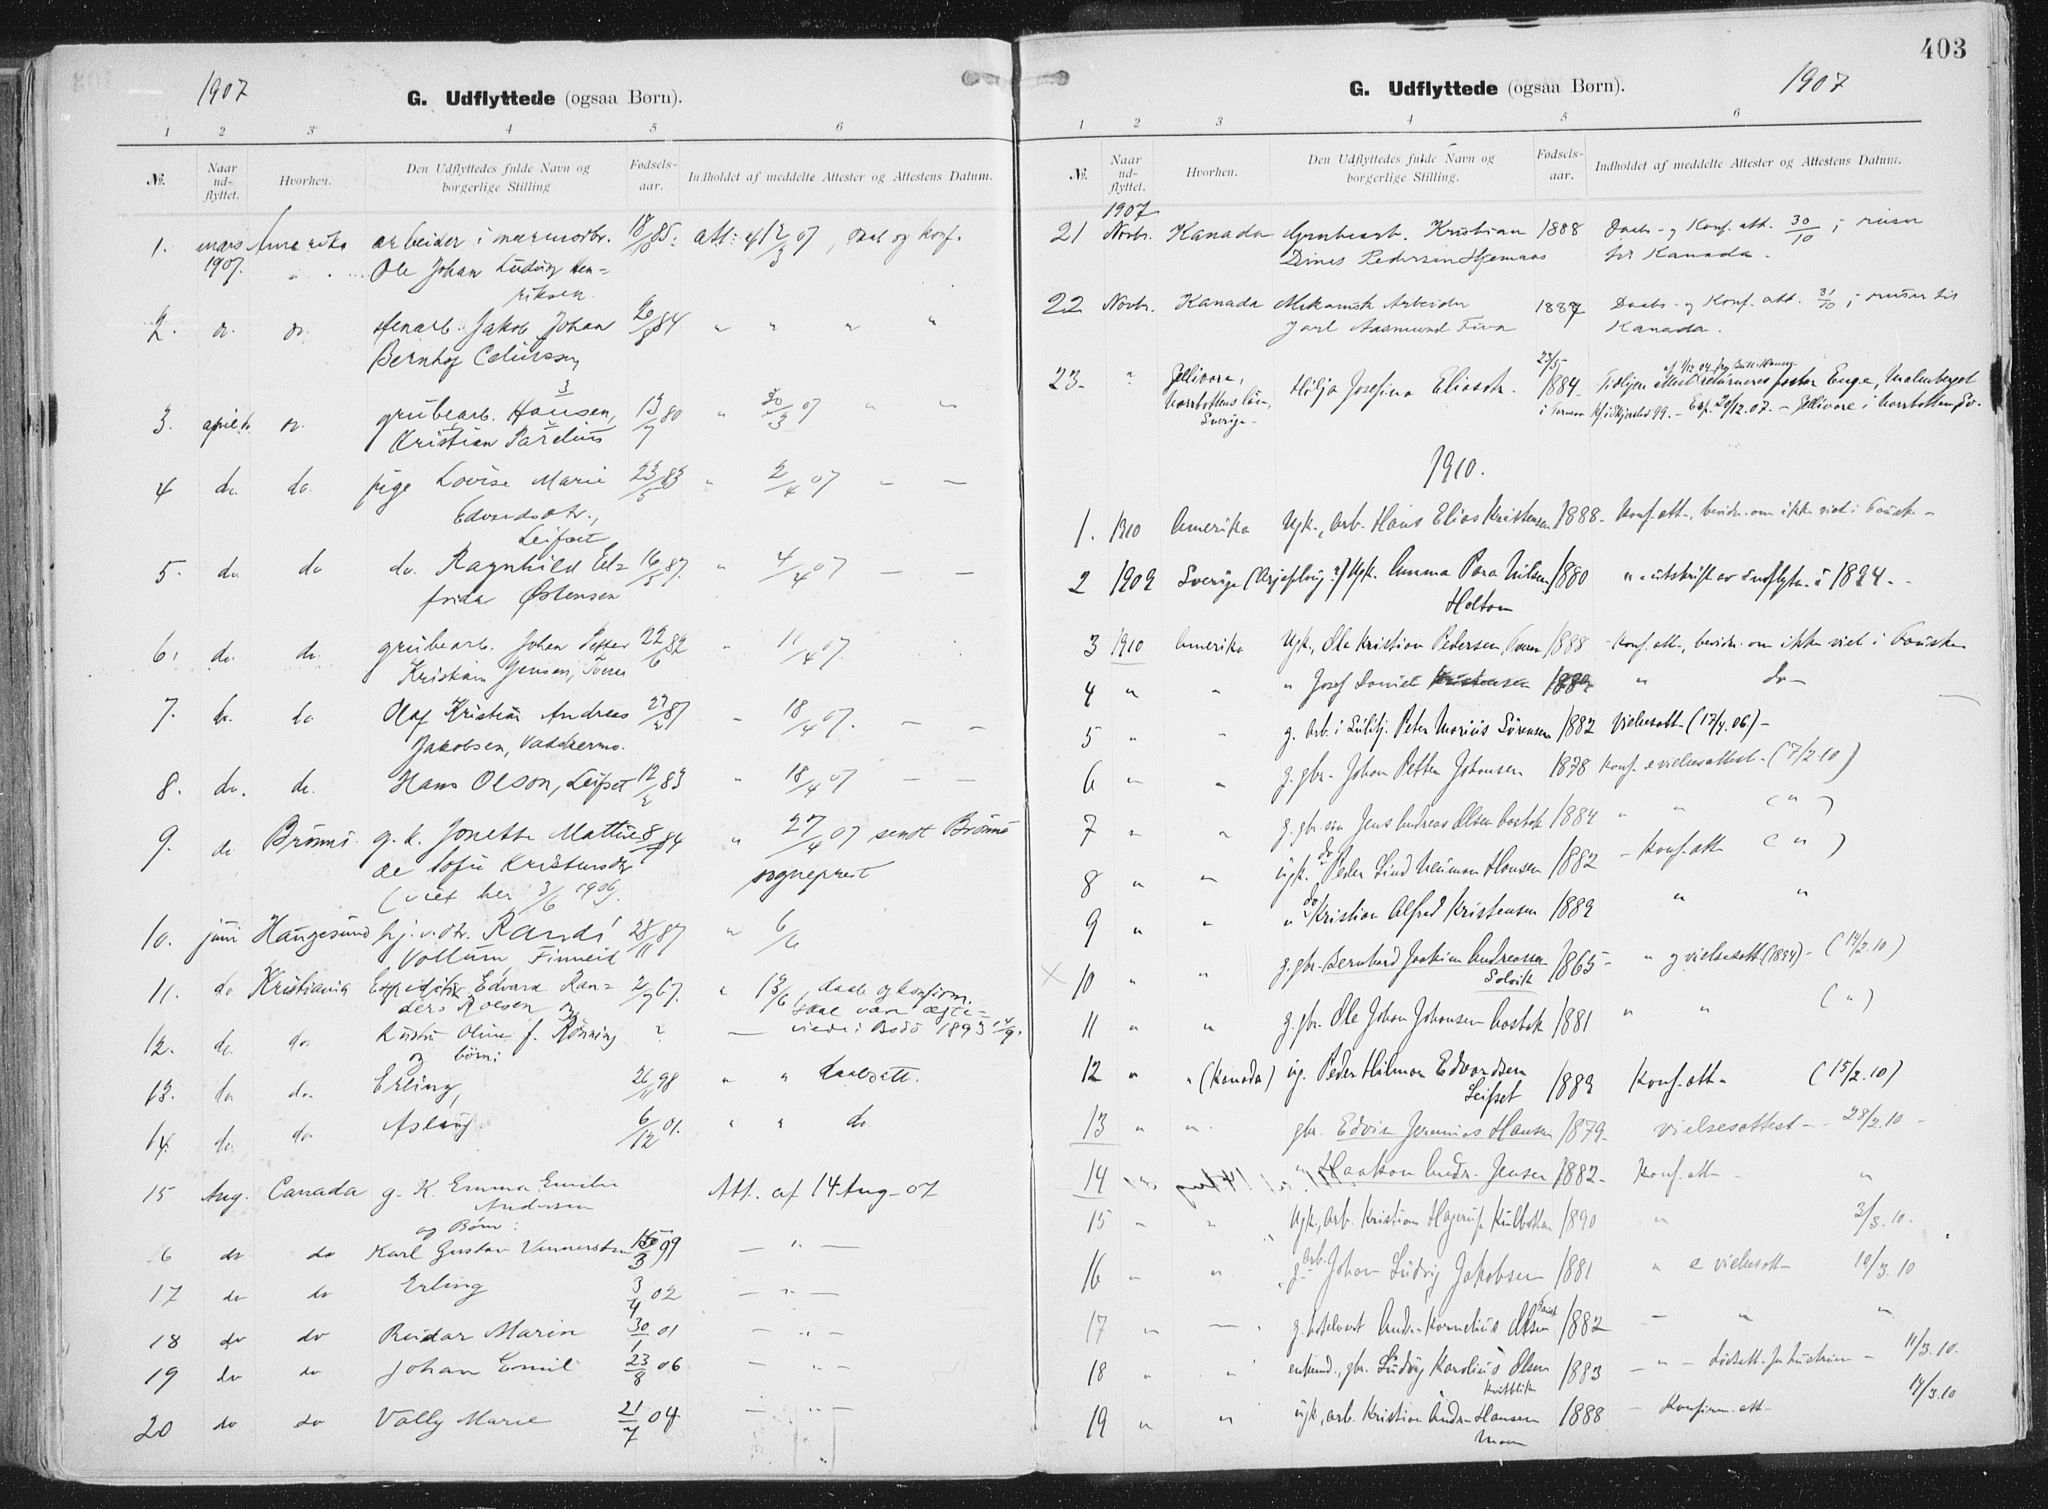 1907
G. Udflyttede (ogsaa Børn).
1 2 3 4 5 6
№. Naar ud-flyttet. Hvorhen. Den Udflyttedes fulde Navn og borgerlige Stilling Fødsels-aar. Indholdet af meddelte Attester og Attestens Datum.
1. mars 1907. Amerika arbeider i marmorbr. 85. att: 12/3 07, daab og konf.
Ole Johan Ludvig Hen=
riksen.
2. do. do. Jakob Johan 84 " " " "
Bernhof
3. april do. grubearb. Hansen, 13/7 80 " 30/3 07 " "
Kristian Parelius
4 do. do. pige Lovise Marie 23/5 83 " 2/4 07 — —
Edvardsdtr.,
Leifset
5. do do do. Ragnhild El= 16/5 87. " 4/4 07 — —
frida Østensen
6. do. do. grubearb. Johan Petter 22/6 82 " 11/4 07.
Kristian Jensen,
7. do. do Olaf Kristian Andreas 87 " 18/4 07. — —
Jakobsen,
8. do. do. Hans Olson, Leifset 12/2 83 " 18/4 07 — —
9. do Brønnø. g. k. Jonette Mathil= 84 " 27/4 07 sendt Brønnø
de Sofie Kristensdtr sogneprest
(viet her 3/6 1906).
10. juni Haugesund Randi 28/11 87 " 6/6
Vollum Finneid
11. do Kristiania Edvard Ran= 2/7 67. " 13/6 daab og konfirm.
ders Roesen og
12. do. do. Oline f. Rønning ? — viede i Bodø 1893
og børn:
13. do do. Erling, 26/11 98 " " daabsatt.
14. do do Aslaug 6/12 01. " " do.
15 Aug. Canada g. K. Emma Emilie Att. af 14 Aug-07
Andersen
og Børn:
6 do do Karl Gustav 99 — " —
17 do do Erling 3/4 02 — " —
18 do do Reidar Marin 30/1 01 — " —
19 do do Johan Emil 23/8 06 — " —
20 do do Vally Marie 21/7 04 — " —
403
G. Udflyttede (ogsaa Børn). 1907
1 2 3 4 5 6
№. Naar ud-flyttet. Hvorhen. Den Udflyttedes fulde Navn og borgerlige Stilling. Fødsels-aar. Indholdet af meddelte Attester og Attestens Datum.
1907
21 Novbr. Kanada Grubearb. Kristian 1888 Daabs- og Konf. att. 30/10; reiser
Dines Pedersen Hjemaas til Kanada.
22 Novbr. Kanada Mekanisk Arbeider 1887 Daabs- og Konf. att. 31/10; reiser til
Jarl Aasmund Kanada.
23. " Gellivare, Hilja Josefina Eliasdtr. 23/5 1884. Tidligere attest returneres pastor Enge, Malmberget
Norrbottens län,
Sverige. 20/12.07. — Gellivare i Norrbotten, Sv.
1910.
1. 1910 Amerika Ugk., arb. Hans Elias Kristensen 1888 - Konf. att., bevidn. om ikke viet i Fauske -
2 1909 Sverige Ugk. Anna Nilsen 1880
Holtan
3 1910 Amerika Ugk., Ole Kristian Pedersen, 1888 - Konf. att., bevidn. om ikke viet i Fauske
4 " " " Josef Daniel " do -
5 " " g. arb. i Peter Marius Sørensen 1882 Vielsesatt - (17/4.06) -
6 " " g. gbr. Johan Petter Johansen 1878 Konf. e vielsesattest - (7/2.10)
7 " " g. gbr. Jens Andreas Olsen 1884 " " (")
8 " " ugk. do Peder Lind Hansen 1882 - Konf. att (")
9 " " " do Kristian Alfred Kristensen 1889 " "
10 " " g. gbr. Bernhard Joakim Andreassen 1865 - " g vielsesatt (1894) - (14/2.10)
Solvik
11 " " g. gbr. Ole Johan Johansen 1881 " " (")
12 " " (Kanada) ug. Peder Hilmar Edvardsen 1889 Konf. att - (15/2.10)
Leifset
13 " " gbr. Edvin Jeremias Hansen 1879 - vielsesattest - 28/2.10 -
14 " Haakon Andr. Jensen 1882 - Konf. att - "
15 " " Ugk, arb. Kristian Hagerup 1890 " 3/3.10.
16 " " g. arb. Johan Ludvig Jakobsen 1881 " e vielsesatt - 10/3.10
17 " — g. Andr. Kornelius Olsen 1882 — " "
18 " " gbr. Ludvig Karolius Olsen 1883 — " — dødsatt. for hustruen — 11/3.10.
19 " " ugk, arb. Kristian Andr. Hansen 1888 — Konfirm. att - 14/3.10